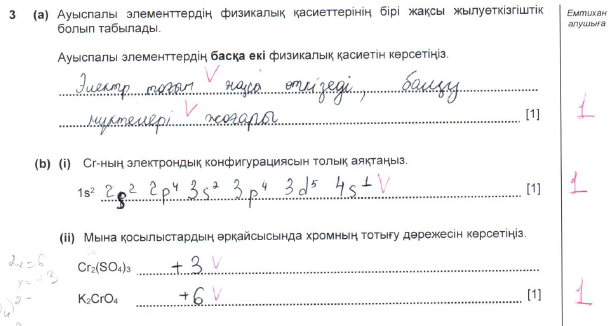 3 (a) Ауыспалы элементтердің физикалық қасиеттерінің бірі жақсы жылуөткізгіштік
болып табылады.
Емтихан
алушыға
Ауыспалы элементтердің басқа екі физикалық қасиетін көрсетіңіз.
Электр тогын жақсы өткізеді, балқу
нүктелері жоғары [1] 1
(b) (i) Cr-ның электрондық конфигурациясын толық аяқтаңыз.
1s² 2s² 2p⁴ 3s² 3p⁴ 3d⁵ 4s¹ [1] 1
(ii) Мына қосылыстардың әрқайсысында хромның тотығу дәрежесін көрсетіңіз.
2x=6
x=-3
Cr₂(SO₄)₃ +3
K₂CrO₄ +6 [1] 1